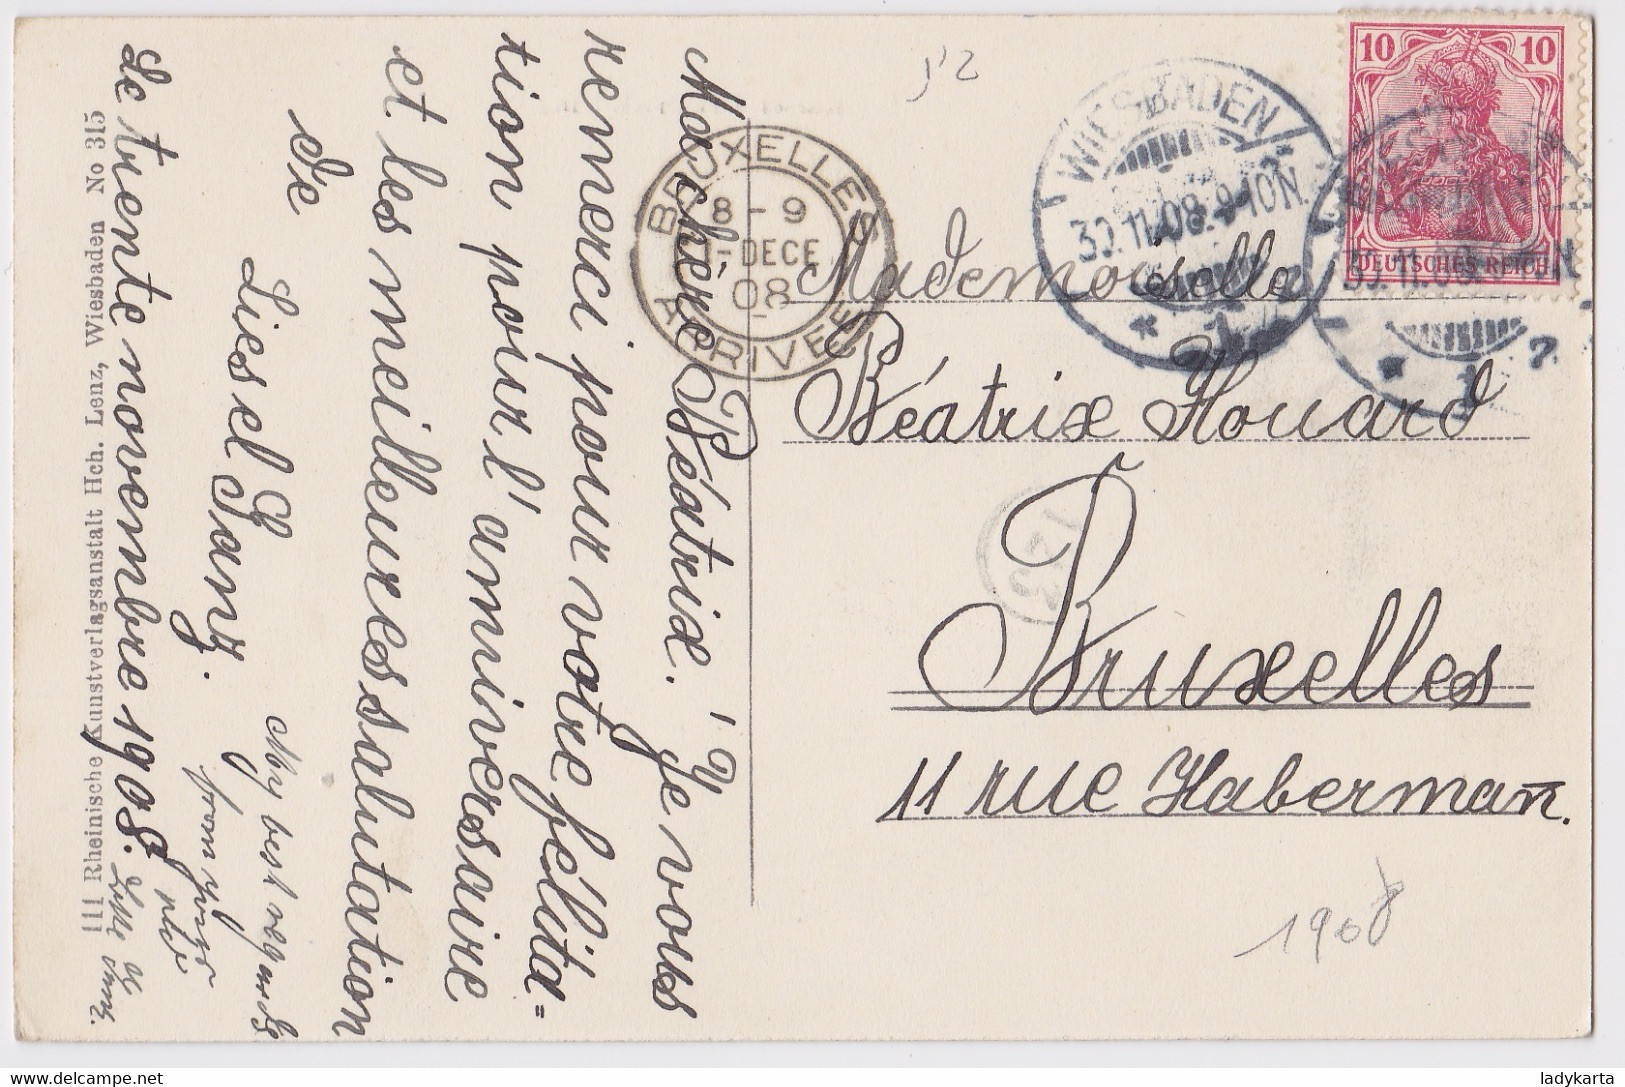 Ma chère Béatrix! Je vous
remerci pour votre félita=
tion pour l'anniversaire
et les meilleures salutation
de
Liesel Ganz.
Le triente novembre 1908.
My best regards
from your
old
111 Rheinische Kunstverlagsanstalt Hch. Lenz, Wiesbaden No 315
BRUXELLES
8-9
1-DECE
08
ARRIVEE
WIESBADEN
30.11.08.9-10N.
* 1
10 10
DEUTSCHES REICH
Mademoiselle
Béatrix Houard
Bruxelles
11 rue Haberman.
123
1908
ladykarta